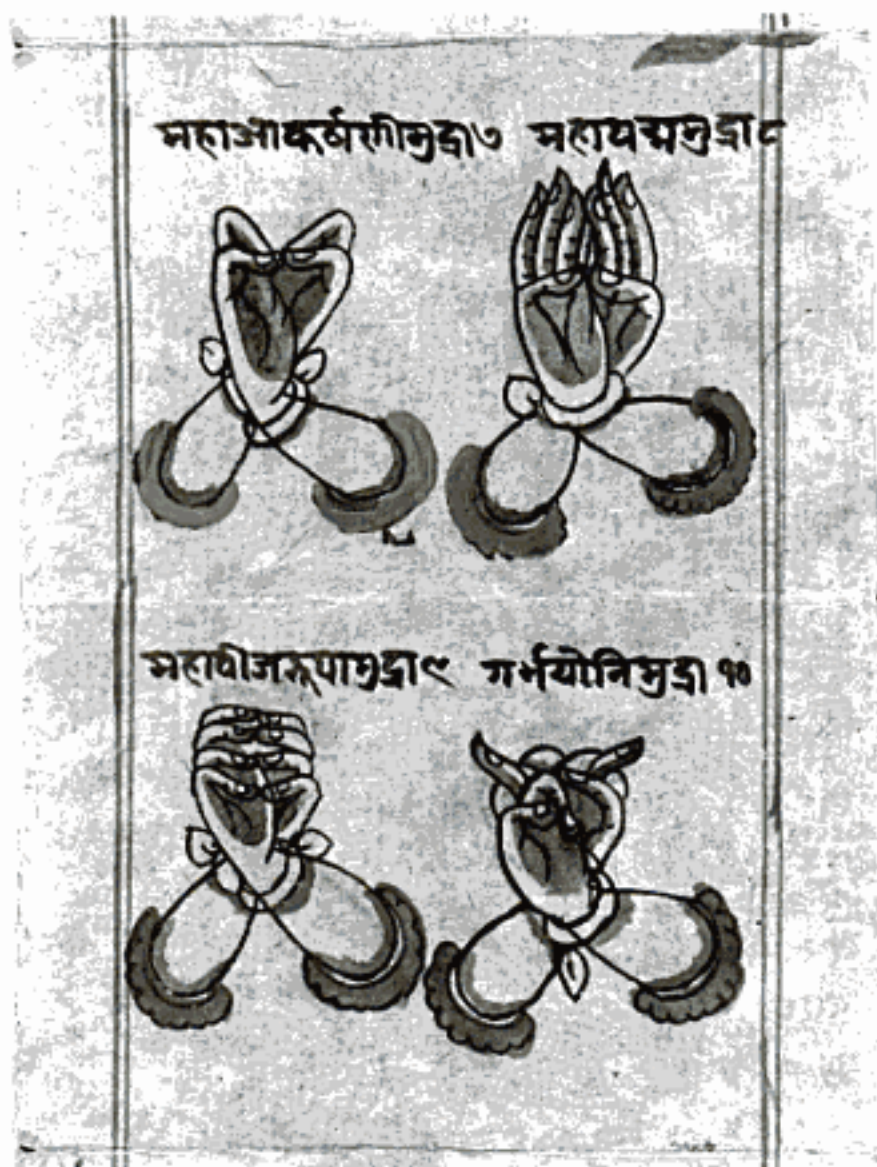 महाआकर्षणीमुद्रा७ महापद्ममुद्रा८
महावीजरूपामुद्रा९ गर्भयोनिमुद्रा १०